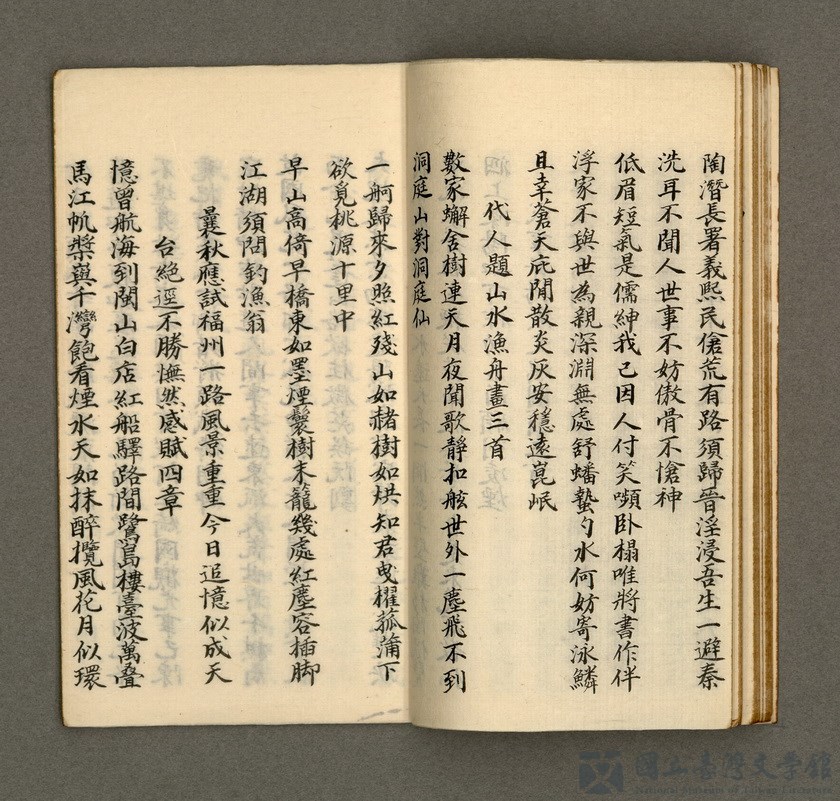 陶潛長署義熙民傖荒有路須歸晉淫浸吾生一避秦
洗耳不聞人世事不妨傲骨不愴神
低眉短氣是儒紳我已因人付笑嚬臥榻唯將書作伴
浮家不與世為親深淵無處舒蟠蟄勺水何妨寄泳鱗
且幸蒼天庇閒散炎灰安穩遠崑岷
代人題山水漁舟畫三首
數家蠏舍樹連天月夜聞歌靜扣舷世外一塵飛不到
洞庭山對洞庭仙
一舸歸來夕照紅殘山如赭樹如烘知君曳櫂菰蒲下
欲覓桃源十里中
早山高倚早橋東如墨煙鬟樹末籠幾處紅塵容插脚
江湖須闊釣漁翁
曩秋應試福州一路風景重重今日追憶似成天
台絕逕不勝憮然感賦四章
憶曾航海到閩山白店紅船驛路間鷺島樓臺波萬叠
馬江帆槳與千灣飽看煙水天如抹醉攬風花月似環
國立臺灣文學館
National Museum of Taiwan Literature